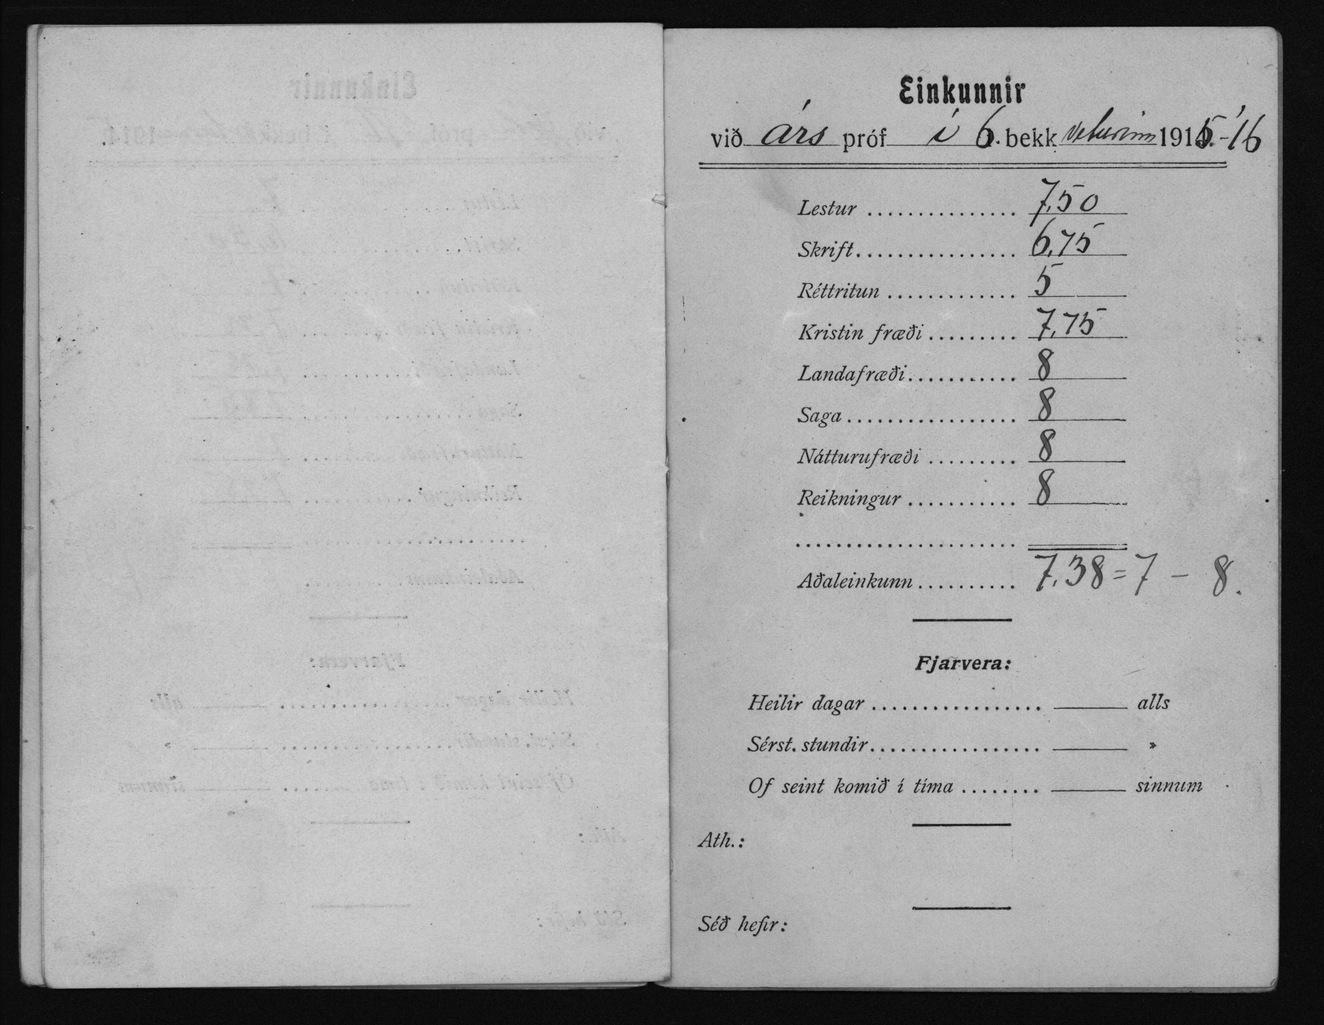 Einkunnir
við árs próf í 6. bekk veturinn 1915-'16
Lestur ................ 7,50
Skrift ................ 6,75
Réttritun ............. 5
Kristin fræði ......... 7,75
Landafræði ............ 8
Saga .................. 8
Nátturufræði .......... 8
Reikningur ............ 8
Aðaleinkunn .......... 7,38 = 7 – 8.
Fjarvera:
Heilir dagar ................. alls
Sérst. stundir ................. „
Of seint komið í tíma ........ sinnum
Ath.:
Séð hefir: